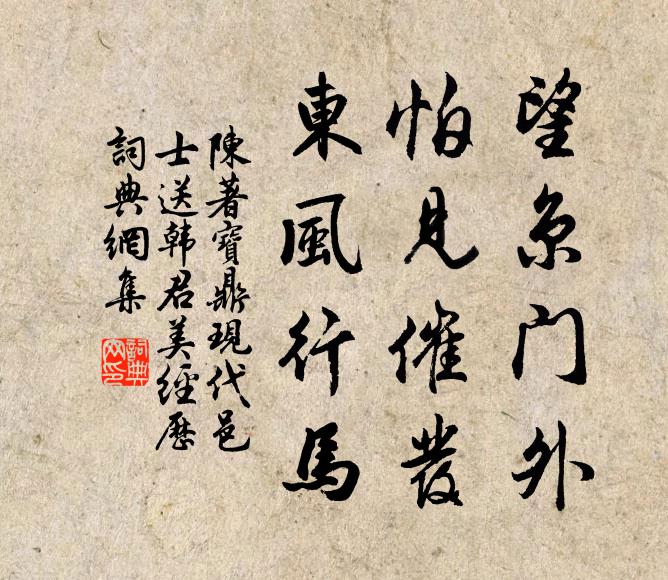 望京门外
怕見催發
東風行馬
陳著寶鼎現代邑
士送韩君美經歷
詞典網集
詞典網印